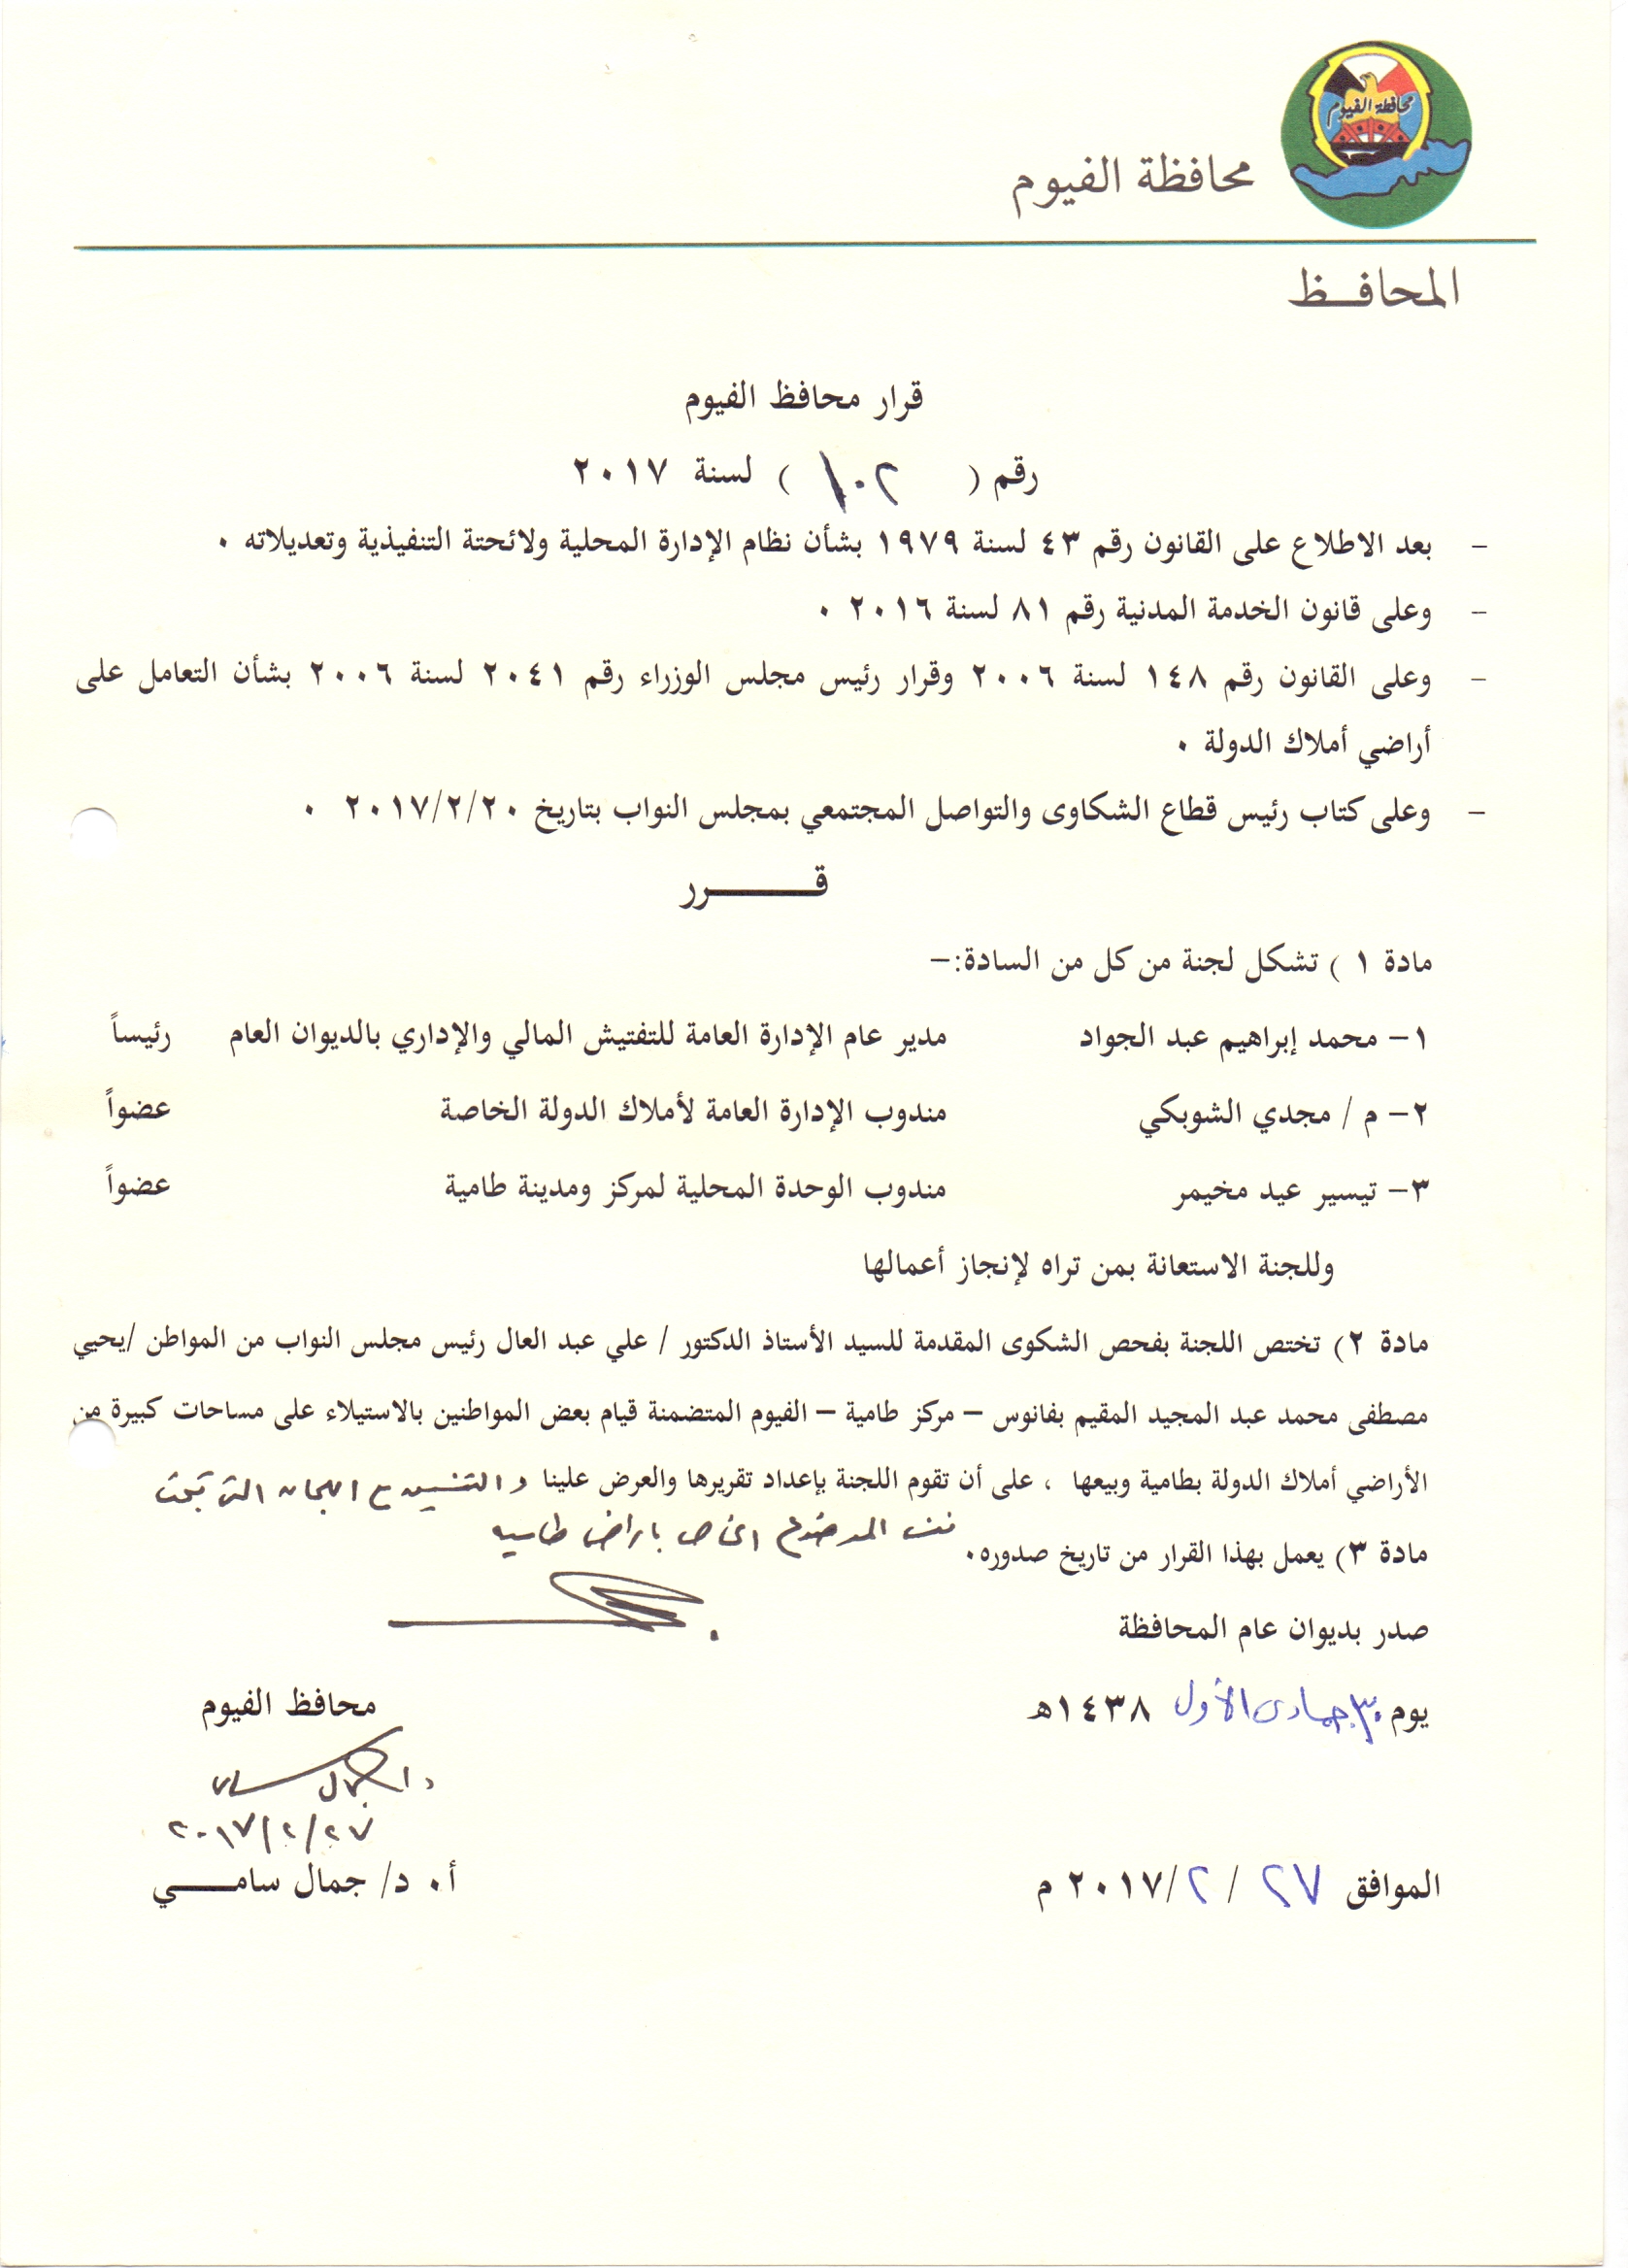 محافظة الفيوم
محافظة الفيوم
المحافـــظ
قرار محافظ الفيوم
رقم ( ١٠٢ ) لسنة ٢٠١٧
- بعد الاطلاع على القانون رقم ٤٣ لسنة ١٩٧٩ بشأن نظام الإدارة المحلية ولائحتة التنفيذية وتعديلاته ٠
- وعلى قانون الخدمة المدنية رقم ٨١ لسنة ٢٠١٦ ٠
- وعلى القانون رقم ١٤٨ لسنة ٢٠٠٦ وقرار رئيس مجلس الوزراء رقم ٢٠٤١ لسنة ٢٠٠٦ بشأن التعامل على
أراضي أملاك الدولة ٠
- وعلى كتاب رئيس قطاع الشكاوى والتواصل المجتمعي بمجلس النواب بتاريخ ٢٠١٧/٢/٢٠ ٠
قـــــــرر
مادة ١ ) تشكل لجنة من كل من السادة:-
١- محمد إبراهيم عبد الجواد مدير عام الإدارة العامة للتفتيش المالي والإداري بالديوان العام رئيساً
٢- م / مجدي الشوبكي مندوب الإدارة العامة لأملاك الدولة الخاصة عضواً
٣- تيسير عيد مخيمر مندوب الوحدة المحلية لمركز ومدينة طامية عضواً
وللجنة الاستعانة بمن تراه لإنجاز أعمالها
مادة ٢) تختص اللجنة بفحص الشكوى المقدمة للسيد الأستاذ الدكتور / علي عبد العال رئيس مجلس النواب من المواطن /يحيي
مصطفى محمد عبد المجيد المقيم بفانوس - مركز طامية - الفيوم المتضمنة قيام بعض المواطنين بالاستيلاء على مساحات كبيرة من
الأراضي أملاك الدولة بطامية وبيعها ، على أن تقوم اللجنة بإعداد تقريرها والعرض علينا والتنسيق مع اللجان التى تبحث
نفس الموضوع الخاص باراضى طاميه
مادة ٣) يعمل بهذا القرار من تاريخ صدوره٠
صدر بديوان عام المحافظة
محافظ الفيوم
يوم ٣٠ جمادى الأول ١٤٣٨هـ
٢٠١٧/٢/٢٧
أ٠ د/ جمال سامـــــي
الموافق ٢٧ / ٢ /٢٠١٧ م